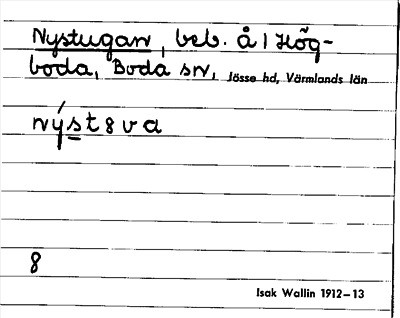 Nystugan, beb. å 1 Hög-
boda, Boda sn, Jösse hd, Värmlands län
nýst8va
8
Isak Wallin 1912–13